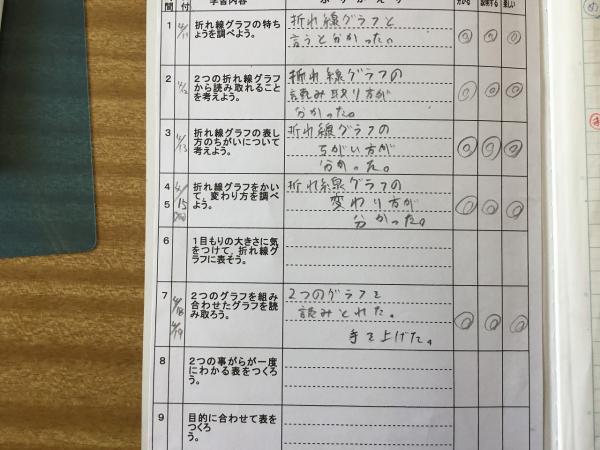 間 付 学習内容 ふりかえり 分かる 説明する 楽しい
1 4/11 折れ線グラフの特ち
ょうを調べよう。
折れ線グラフと
言うとわかった。
◎ ◎ ◎
2 4/12 2つの折れ線グラフ
から読み取れること
を考えよう。
折れ線グラフの
読み取り方が
分かった。
◎ ◎ ◎
3 4/13 折れ線グラフの表し
方のちがいについて
考えよう。
折れ線グラフの
ちがい方が
分かった。
◎ ◎ ◎
4
5
4/15
折れ線グラフをかい
て、変わり方を調べ
よう。
折れ線グラフの
変わり方が
分かった。
◎ ◎ ◎
6 1目もりの大きさに気
をつけて、折れ線グ
ラフに表そう。
7 4/18
4/19
2つのグラフを組み
合わせたグラフを読
み取ろう。
2つのグラフを
読みとれた。
手を上げた。
◎ ◎ ◎
8 2つの事がらが一度
にわかる表をつくろ
う。
9 目的に合わせて表を
つくろ
う。